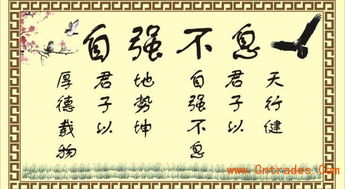 自强不息
天行健
君子以
自强不息
地势坤
君子以
厚德载物
www.Cntrades.Com